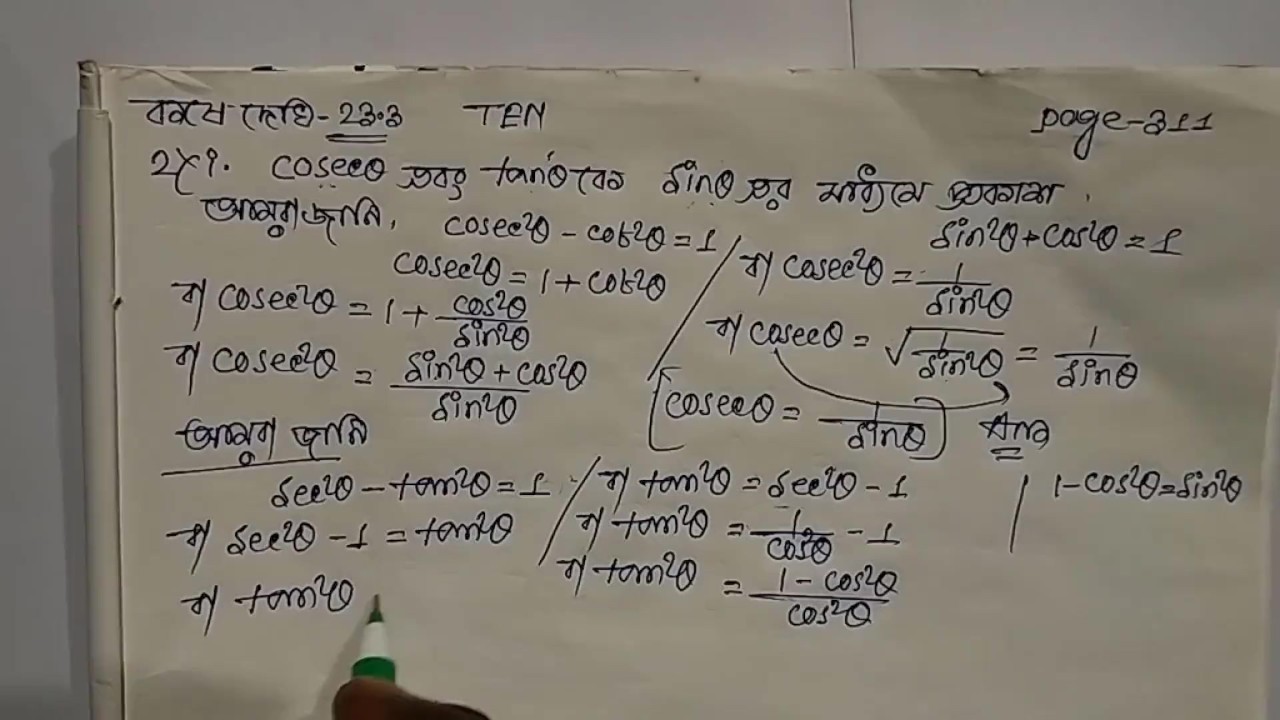 কষে দেখি - 23.3 TEN page-311
2x9. cosecθ এবং tanθ কে sinθ এর মাধ্যমে
আমরা জানি, cosec²θ - cot²θ = 1
cosec²θ = 1 + cot²θ
বা cosec²θ = 1 + cos²θ/sin²θ
বা cosec²θ = sin²θ + cos²θ/sin²θ
sin²θ + cos²θ = 1
বা cosec²θ = 1/sin²θ
বা cosecθ = √1/sin²θ = 1/sinθ
[cosecθ = 1/sinθ] Ans
আমরা জানি
sec²θ - tan²θ = 1
বা sec²θ - 1 = tan²θ
বা tan²θ
বা tan²θ = sec²θ - 1
বা tan²θ = 1/cos²θ - 1
বা tan²θ = 1 - cos²θ/cos²θ
1 - cos²θ = sin²θ